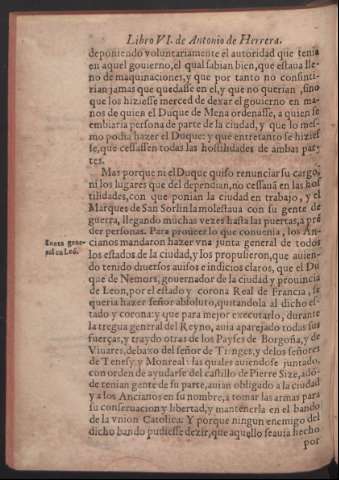 Libro VI. de Antonio de Herrera.
deponiendo voluntariamente el autoridad que tenia
en aquel gouierno, el qual sabian bien, que estaua lle-
no de maquinaciones, y que por tanto no consinti-
rian jamas que quedasse en el, y que no querian, sino
que los hiziesse merced de dexar el gouierno en ma-
nos de quien el Duque de Mena ordenasse, a quien se
embiaria persona de parte de la ciudad, y que lo mes-
mo podia hazer el Duque: y que entretanto se hizies-
se, que cessassen todas las hostilidades de ambas par-
tes.
Mas porque ni el Duque quiso renunciar su cargo,
ni los lugares que del dependian, no cessauã en las hos-
tilidades, con que ponian la ciudad en trabajo, y el
Marques de San Sorlin la molestaua con su gente de
guerra, llegando muchas vezes hasta las puertas, a prẽ
der personas. Para proueer lo que conuenia, los An-
Iunta gene-
ral en Leõ.
cianos mandaron hazer vna junta general de todos
los estados de la ciudad, y los propusieron, que auien-
do tenido diuersos auisos e indicios claros, que el Du
que de Nemors, gouernador de la ciudad y prouincia
de Leon, por el estado y corona Real de Francia, se
queria hazer señor absoluto, quitandola al dicho es-
tado y corona: y que para mejor executarlo, durante
la tregua general del Reyno, auia aparejado todas sus
fuerças, y traydo otras de los Payses de Borgoña, y de
Viuares, debaxo del señor de Tringet, y de los señores
de Tenesy, y Monreal: las quales auiendose juntado,
con orden de ayudarse del castillo de Pierre Size, adõ-
de tenian gente de su parte, auian obligado a la ciudad
y a los Ancianos en su nombre, a tomar las armas para
su conseruacion y libertad, y mantenerla en el bando
de la vnion Catolica. Y porque ningun enemigo del
dicho bando pudiesse dezir, que aquello se auia hecho
por